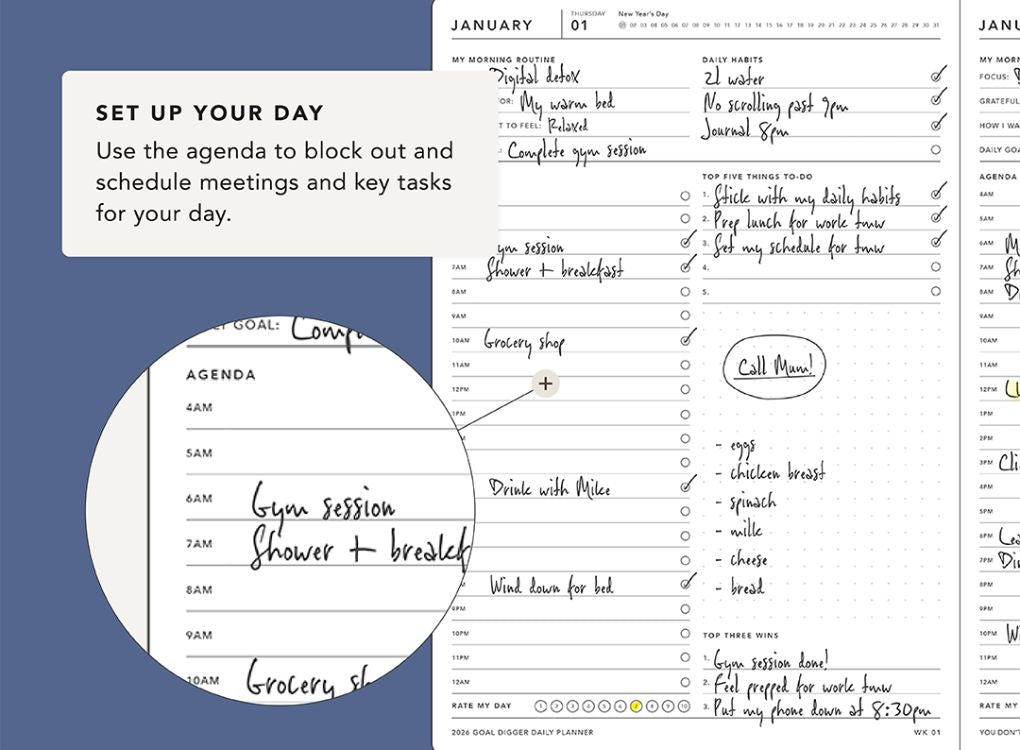 SET UP YOUR DAY
Use the agenda to block out and
schedule meetings and key tasks
for your day.
JANUARY
THURSDAY
01
New Year's Day
01 02 03 04 05 06 07 08 09 10 11 12 13 14 15 16 17 18 19 20 21 22 23 24 25 26 27 28 29 30 31
MY MORNING ROUTINE
Digital detox
FOR: My warm bed
T TO FEEL: Relaxed
Complete gym session
Gym session
7AM Shower + breakfast
8AM
9AM
10AM Grocery shop
11AM
12PM
1PM
Drink with Mike
Wind down for bed
9PM
10PM
11PM
12AM
RATE MY DAY 1 2 3 4 5 6 7 8 9 10
2026 GOAL DIGGER DAILY PLANNER
DAILY HABITS
2l water
No scrolling past 9pm
Journal 8pm
TOP FIVE THINGS TO-DO
1. Stick with my daily habits
2. Prep lunch for work tmw
3. Set my schedule for tmw
4.
5.
Call Mum!
- eggs
- chicken breast
- spinach
- milk
- cheese
- bread
TOP THREE WINS
1. Gym session done!
2. Feel prepped for work tmw
3. Put my phone down at 8:30pm
WK 01
GOAL: Comp
AGENDA
4AM
5AM
6AM Gym session
7AM Shower + breakf
8AM
9AM
10AM Grocery sh
JANU
MY MORN
FOCUS:
GRATEFUL
HOW I WA
DAILY GOA
AGENDA
4AM
5AM
6AM M
7AM Sh
8AM D
9AM
10AM
11AM
12PM
1PM
2PM
3PM Cli
4PM
5PM
6PM Lea
7PM Din
8PM
9PM
10PM Wi
11PM
12AM
RATE MY
YOU DON'T